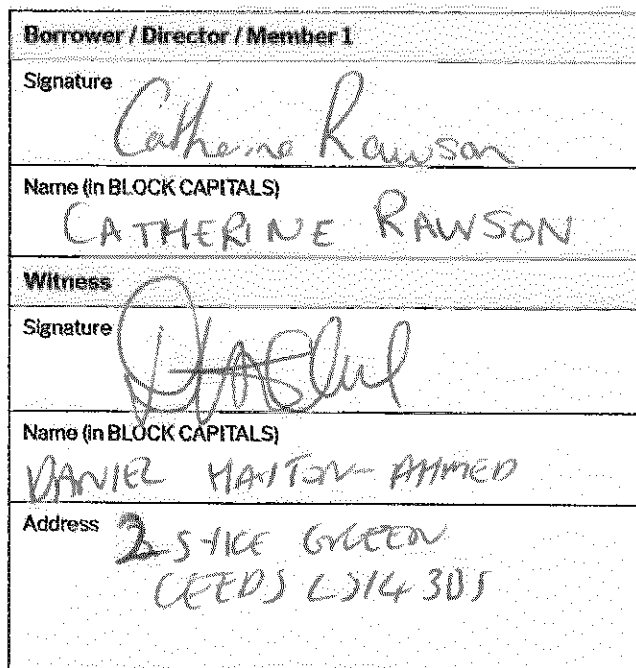 Borrower / Director / Member 1
Signature
Catherine Rawson
Name (in BLOCK CAPITALS)
CATHERINE RAWSON
Witness
Signature
Name (in BLOCK CAPITALS)
DANIEL AHMED
Address 2 GREEN
LEEDS LS14